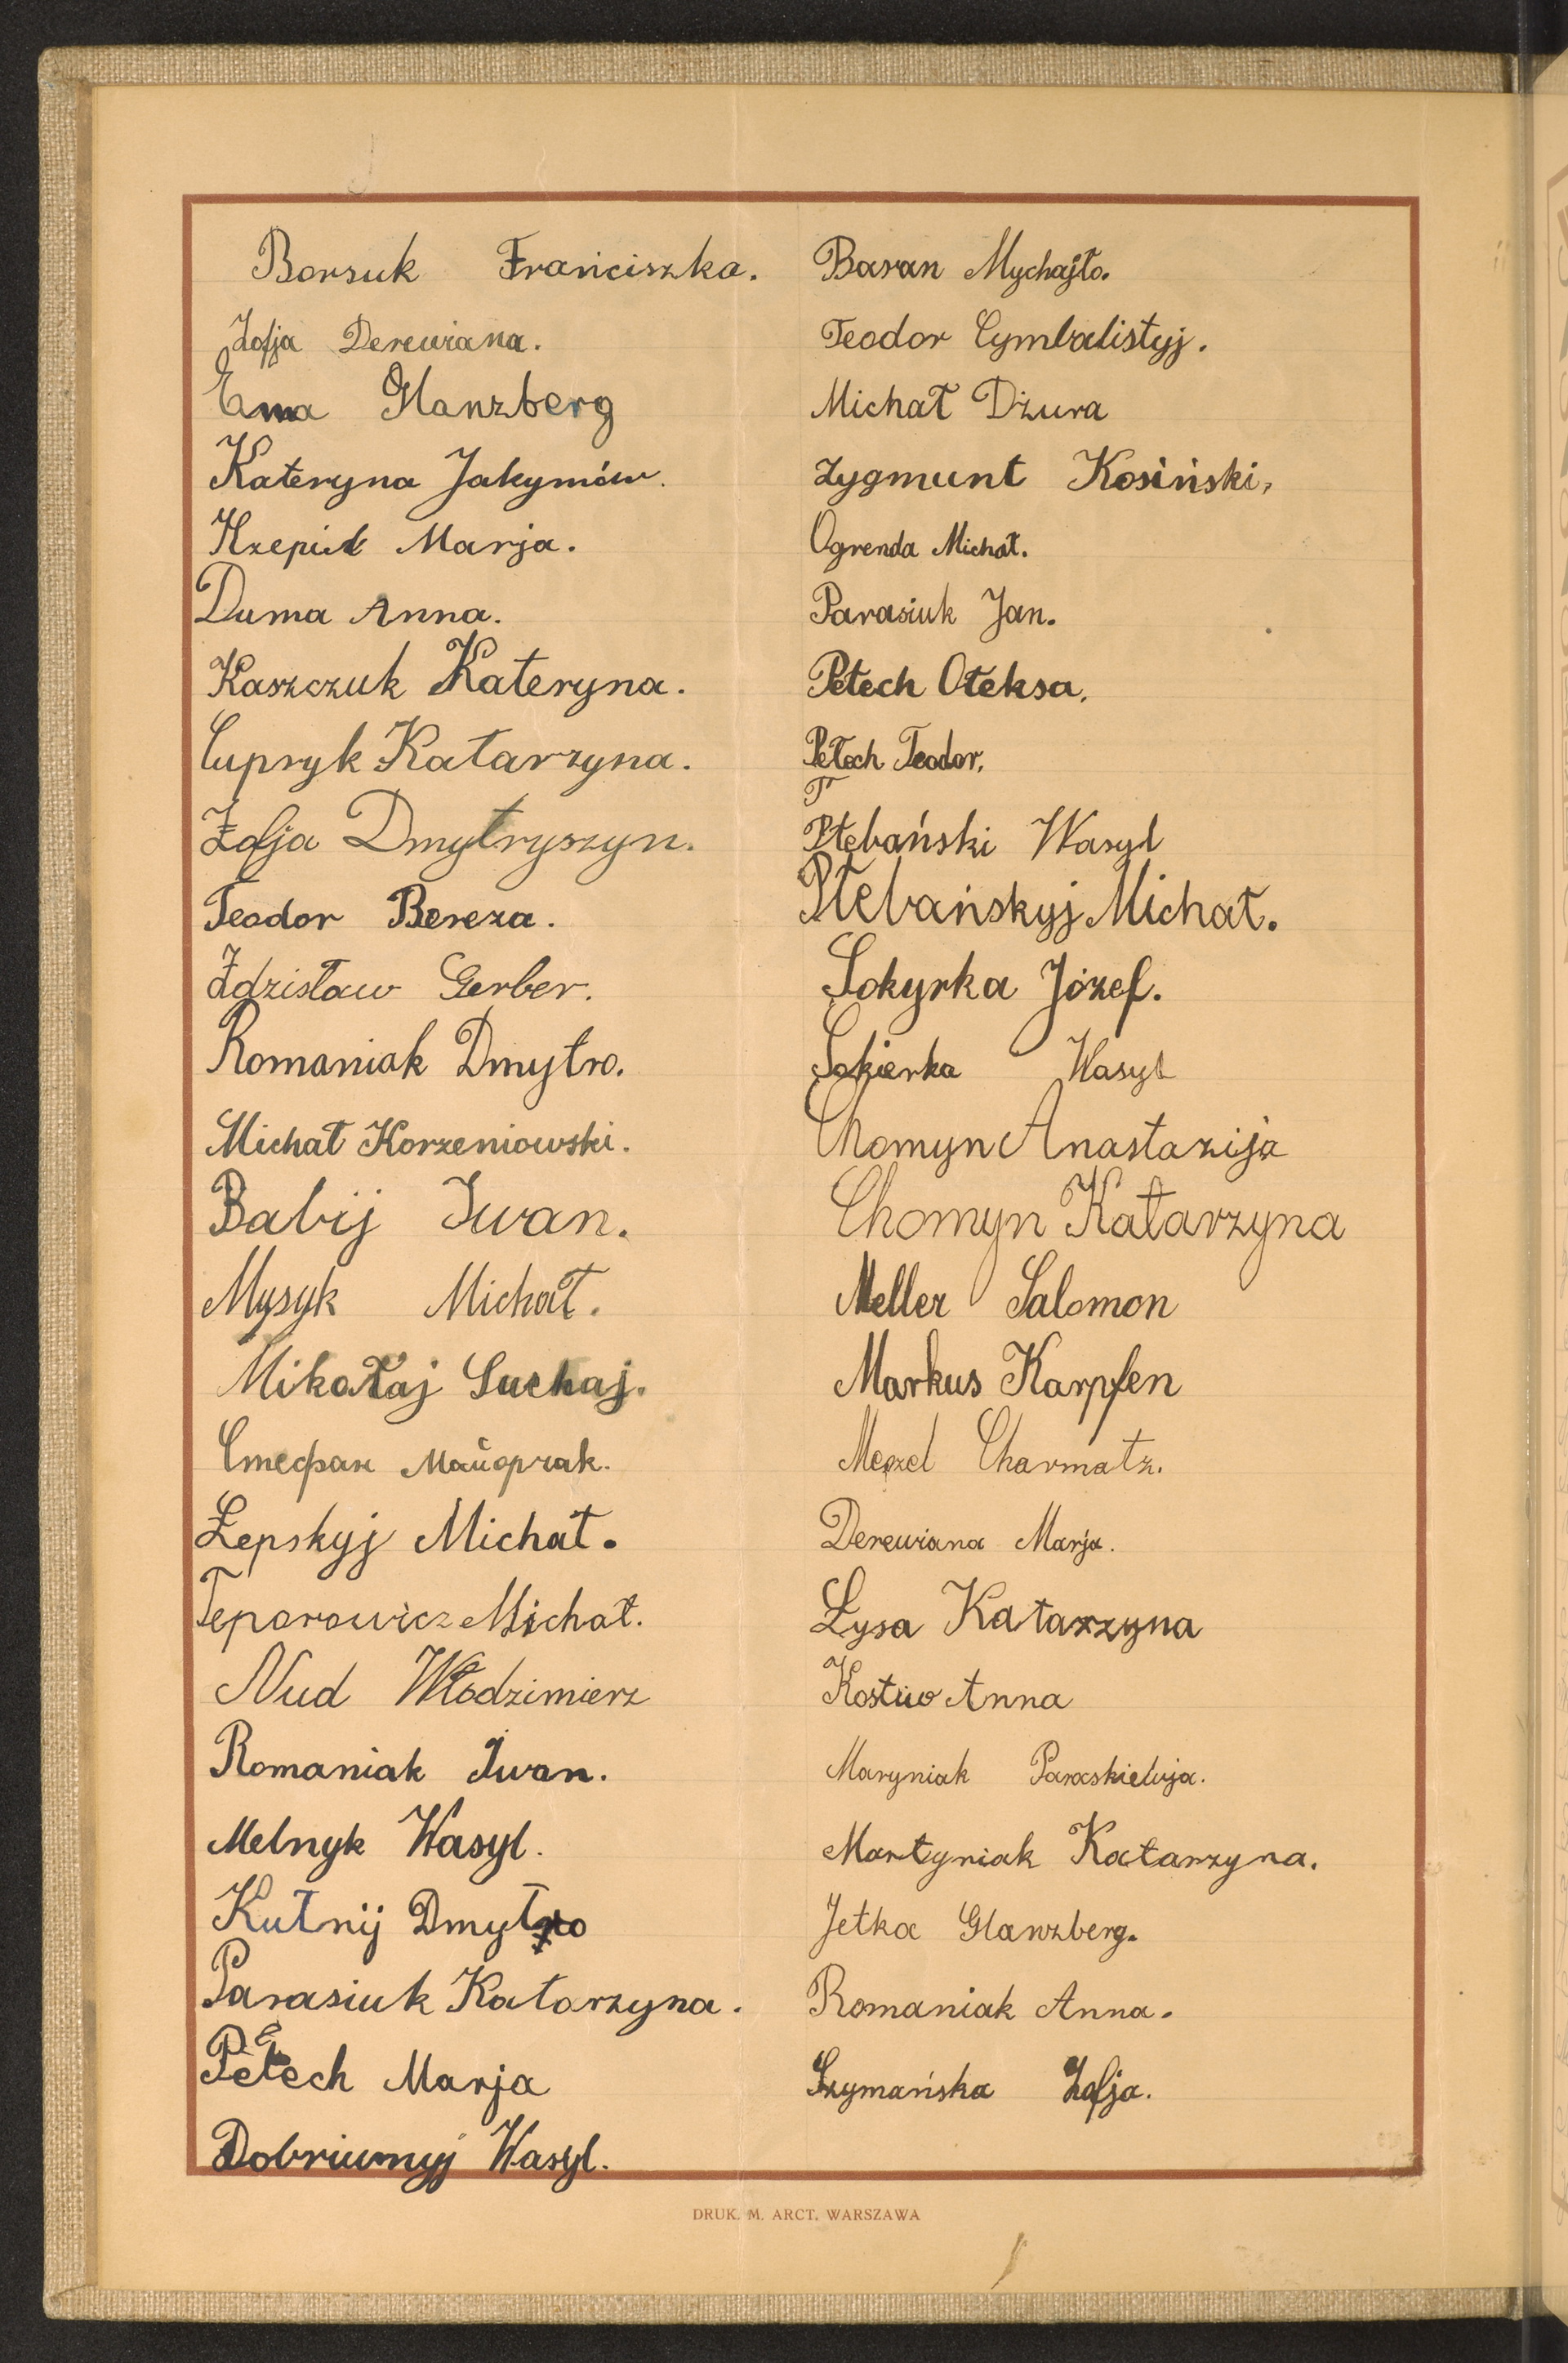 Borsuk Franciszka.
Zofja Derewiana.
Ema Glanzberg
Kateryna Jakymów.
Krepid Marja.
Duma Anna.
Kaszczuk Kateryna.
Cupryk Katarzyna.
Zofja Dmytryszyn.
Teodor Bereza.
Zdzisław Gerber.
Romaniak Dmytro.
Michał Korzeniowski.
Babij Iwan.
Mysyk Michał.
Mikołaj Suchaj.
Стефан
Łepskyj Michał.
Teporowicz Michał.
Nud Włodzimierz
Romaniak Iwan.
Melnyk Wasyl.
Kutnij Dmytro
Parasiuk Katarzyna.
Pełech Marja
Dobriwnyj Wasyl.
Baran Mychajło.
Teodor Cymbalistyj.
Michał Dżura
Zygmunt Kosiński,
Ogrenda Michał.
Parasiuk Jan.
Pełech Ołeksa.
Pełech Teodor.
Płebański Wasyl
Płebańskyj Michał.
Sokyrka Józef.
Sokierka Wasyl
Chomyn Anastazija
Chomyn Katarzyna
Meller Salomon
Markus Karpfen
Charmatz.
Derewiana Marja.
Łysa Katarzyna
Kostiw Anna
Maryniak Paraskiewja.
Martyniak Katarzyna.
Jetka Glanzberg.
Romaniak Anna.
Szymańska Zofja.
DRUK. M. ARCT, WARSZAWA